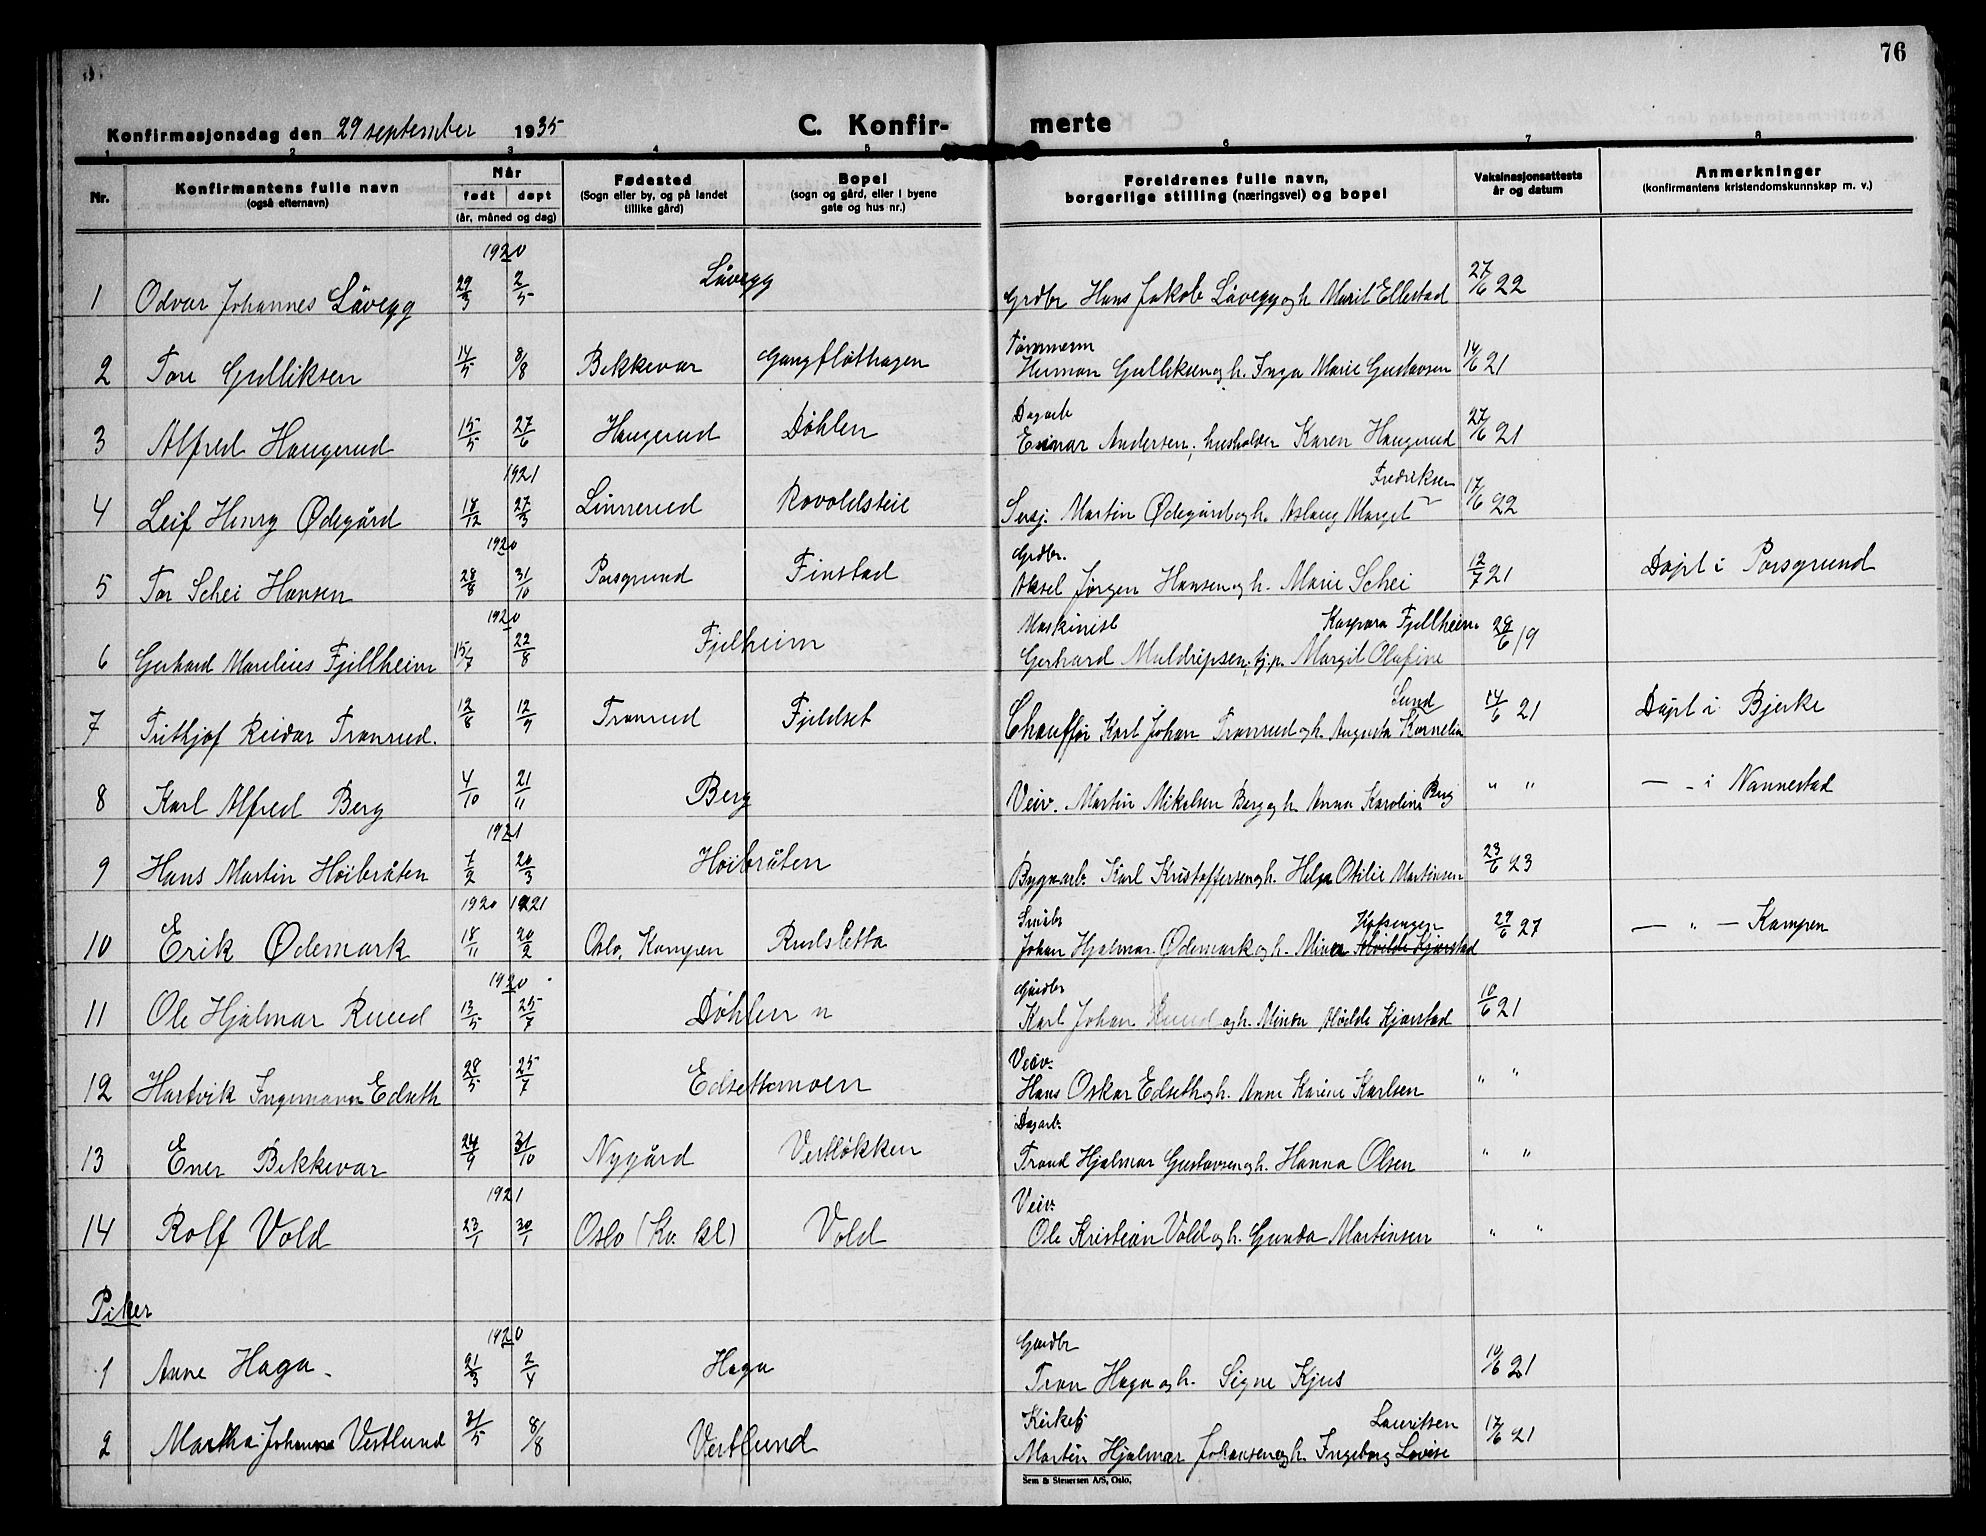 76
Konfirmasjonsdag den 29 september 1935 C. Konfir- merte
1 2 3 4 5 6 7 8
Nr. Konfirmantens fulle navn (også efternavn) Når født døpt (år, måned og dag) Fødested (Sogn eller by, og på landet tillike gård) Bopel (sogn og gård, eller i byene gate og hus nr.) Foreldrenes fulle navn, borgerlige stilling (næringsvei) og bopel Vaksinasjonsattests år og datum Anmerkninger (konfirmantens kristendomskunnskap m. v.)
1920
1 Odvar Johannes Låvegg 29/3 2/5 Låvegg Grdbr Hans Jakob Låvegg og h. Marit Ellestad 27/6 22
Tømmerm
2 Tore Gulliksen 14/5 8/8 Bekkevar Gangfløthagen Herman Gulliksen og h. Inga Marie Gustavsen 14/6 21
Dagarb
3 Alfred Haugerud 15/5 27/6 Haugerud Døhlen Einar Andersen, husholder Karen Haugerud 27/6 21
1921 Fredriksen
4 Leif Henry Ødegård 18/12 27/3 Linnerud Rovoldsteie Sersj. Martin Ødegård og h. Aslaug Margit 17/6 22
1920 Grdbr.
5 Tor Schei Hansen 28/8 31/10 Porsgrund Finstad Aksel Jørgen Hansen og h. Marie Schei 12/7 21 Døpt i Porsgrund
1920 Maskinist Kaspara Fjellheim
6 Gerhard Marelius Fjellheim 15/7 22/8 Fjelheim Gerhard Muldripsen, tj.p. Margit Olufine 28/6 19
Lund
7 Frithjof Reidar Tranrud. 12/8 12/9 Tranrud Fjeldset Chauffør Karl Johan Tranrud og h. Augusta Kornelia 14/6 21 Døpt i Bjerke
8 Karl Alfred Berg 4/10 21/11 Berg Veiv. Martin Nikolsen Berg og h. Anna Karoline Berg " " — - i Nannestad
1921
9 Hans Martin Höibråten 7/2 20/3 Höibråten Bygnarb. Karl Kristoffersen og h. Helga Otilie Martinsen 23/6 23
1920 1921 Småbr
10 Erik Ødemark 18/11 20/2 Oslo, Kampen Rudsletta Johan Hjalmar Ødemark og h. Mina Alvilde Kjørstad 29/6 27 — " — Kampen
1920 Gårdbr
11 Ole Hjalmar Ruud 13/5 25/7 Døhlen n Karl Johan Ruud og h. Minda Alvilde Kjørstad 10/6 21
Veiv.
12 Hartvik Ingemann Edseth 28/5 25/7 Edsettmoen Hans Oskar Edseth og h. Anne Karine Karlsen " "
Dagarb.
13 Ener Bekkevar 24/9 31/10 Nygård Vestløkken Trond Hjalmar Gustavsen og h. Hanna Olsen " "
1921 Veiv.
14 Rolf Vold 23/1 30/1 Oslo (Kv. kl) Vold Ole Kristian Vold og h. Gunda Martinsen " "
Piker
1920 Gårdbr
1 Anne Haga 21/3 2/4 Haga Tron Haga og h. Signe Kjus 10/6 21
Kirketj Lauritsen
2 Martha Johanne Vestlund 31/5 8/8 Vestlund Martin Hjalmar Johansen og h. Ingeborg Lovise 17/6 21
Sem & Stenersen A/S, Oslo.